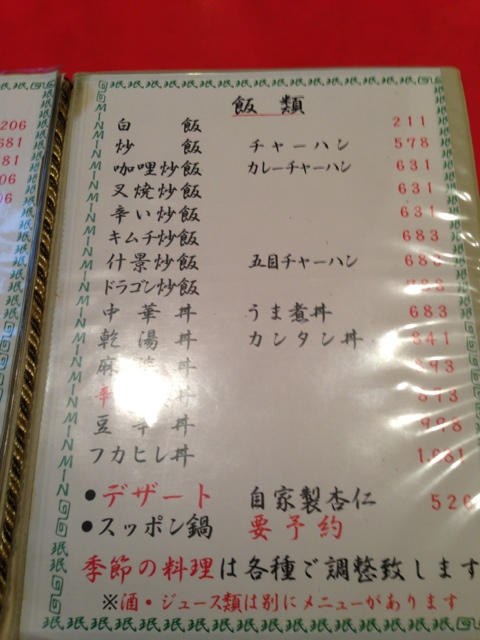 206
681
681
飯類
白飯 211
炒飯 チャーハン 578
咖哩炒飯 カレーチャーハン 631
叉焼炒飯 631
辛い炒飯 631
キムチ炒飯 683
什景炒飯 五目チャーハン 683
ドラゴン炒飯
中華丼 うま煮丼 683
乾湯丼 カンタン丼 841
麻 丼
辛 丼
豆 丼
フカヒレ丼 1,061
●デザート 自家製杏仁 526
●スッポン鍋 要予約
季節の料理は各種ご調整致します
※酒・ジュース類は別にメニューがあります